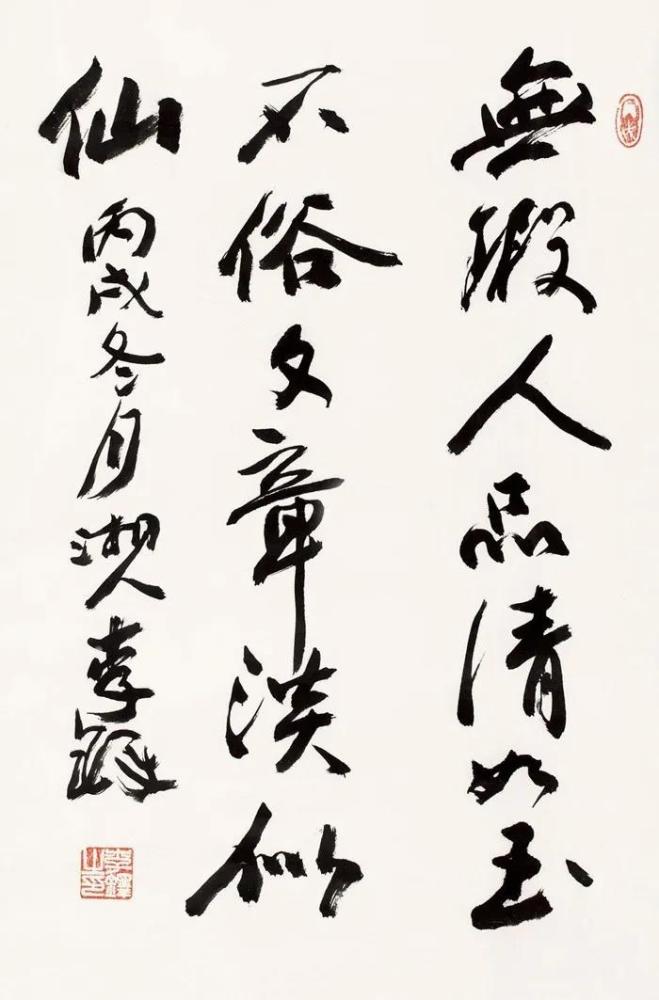 無瑕人品清如玉
不俗文章淡似
仙 丙戌冬月湘人李鐸
李鐸之印